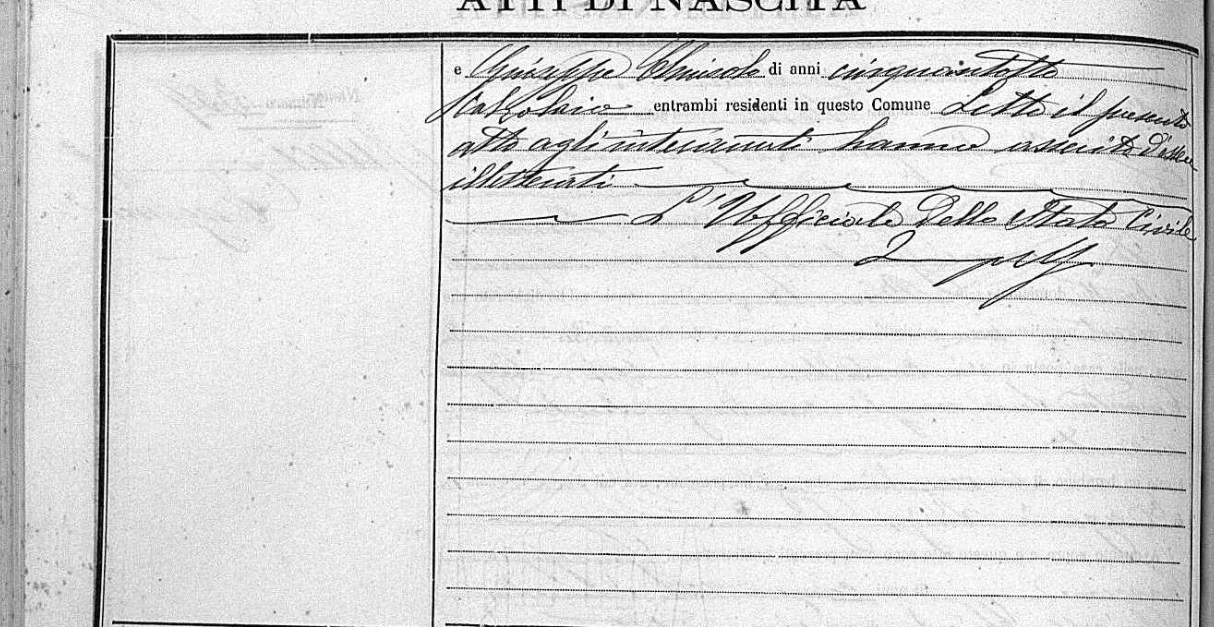 ATTI DI NASCITA
e Giuseppe di anni cinquantotto
Calzolaio entrambi residenti in questo Comune Letto il presente
atto agli intervenuti hanno asserito d'essere
illetterati
L'Ufficiale Dello Stato Civile